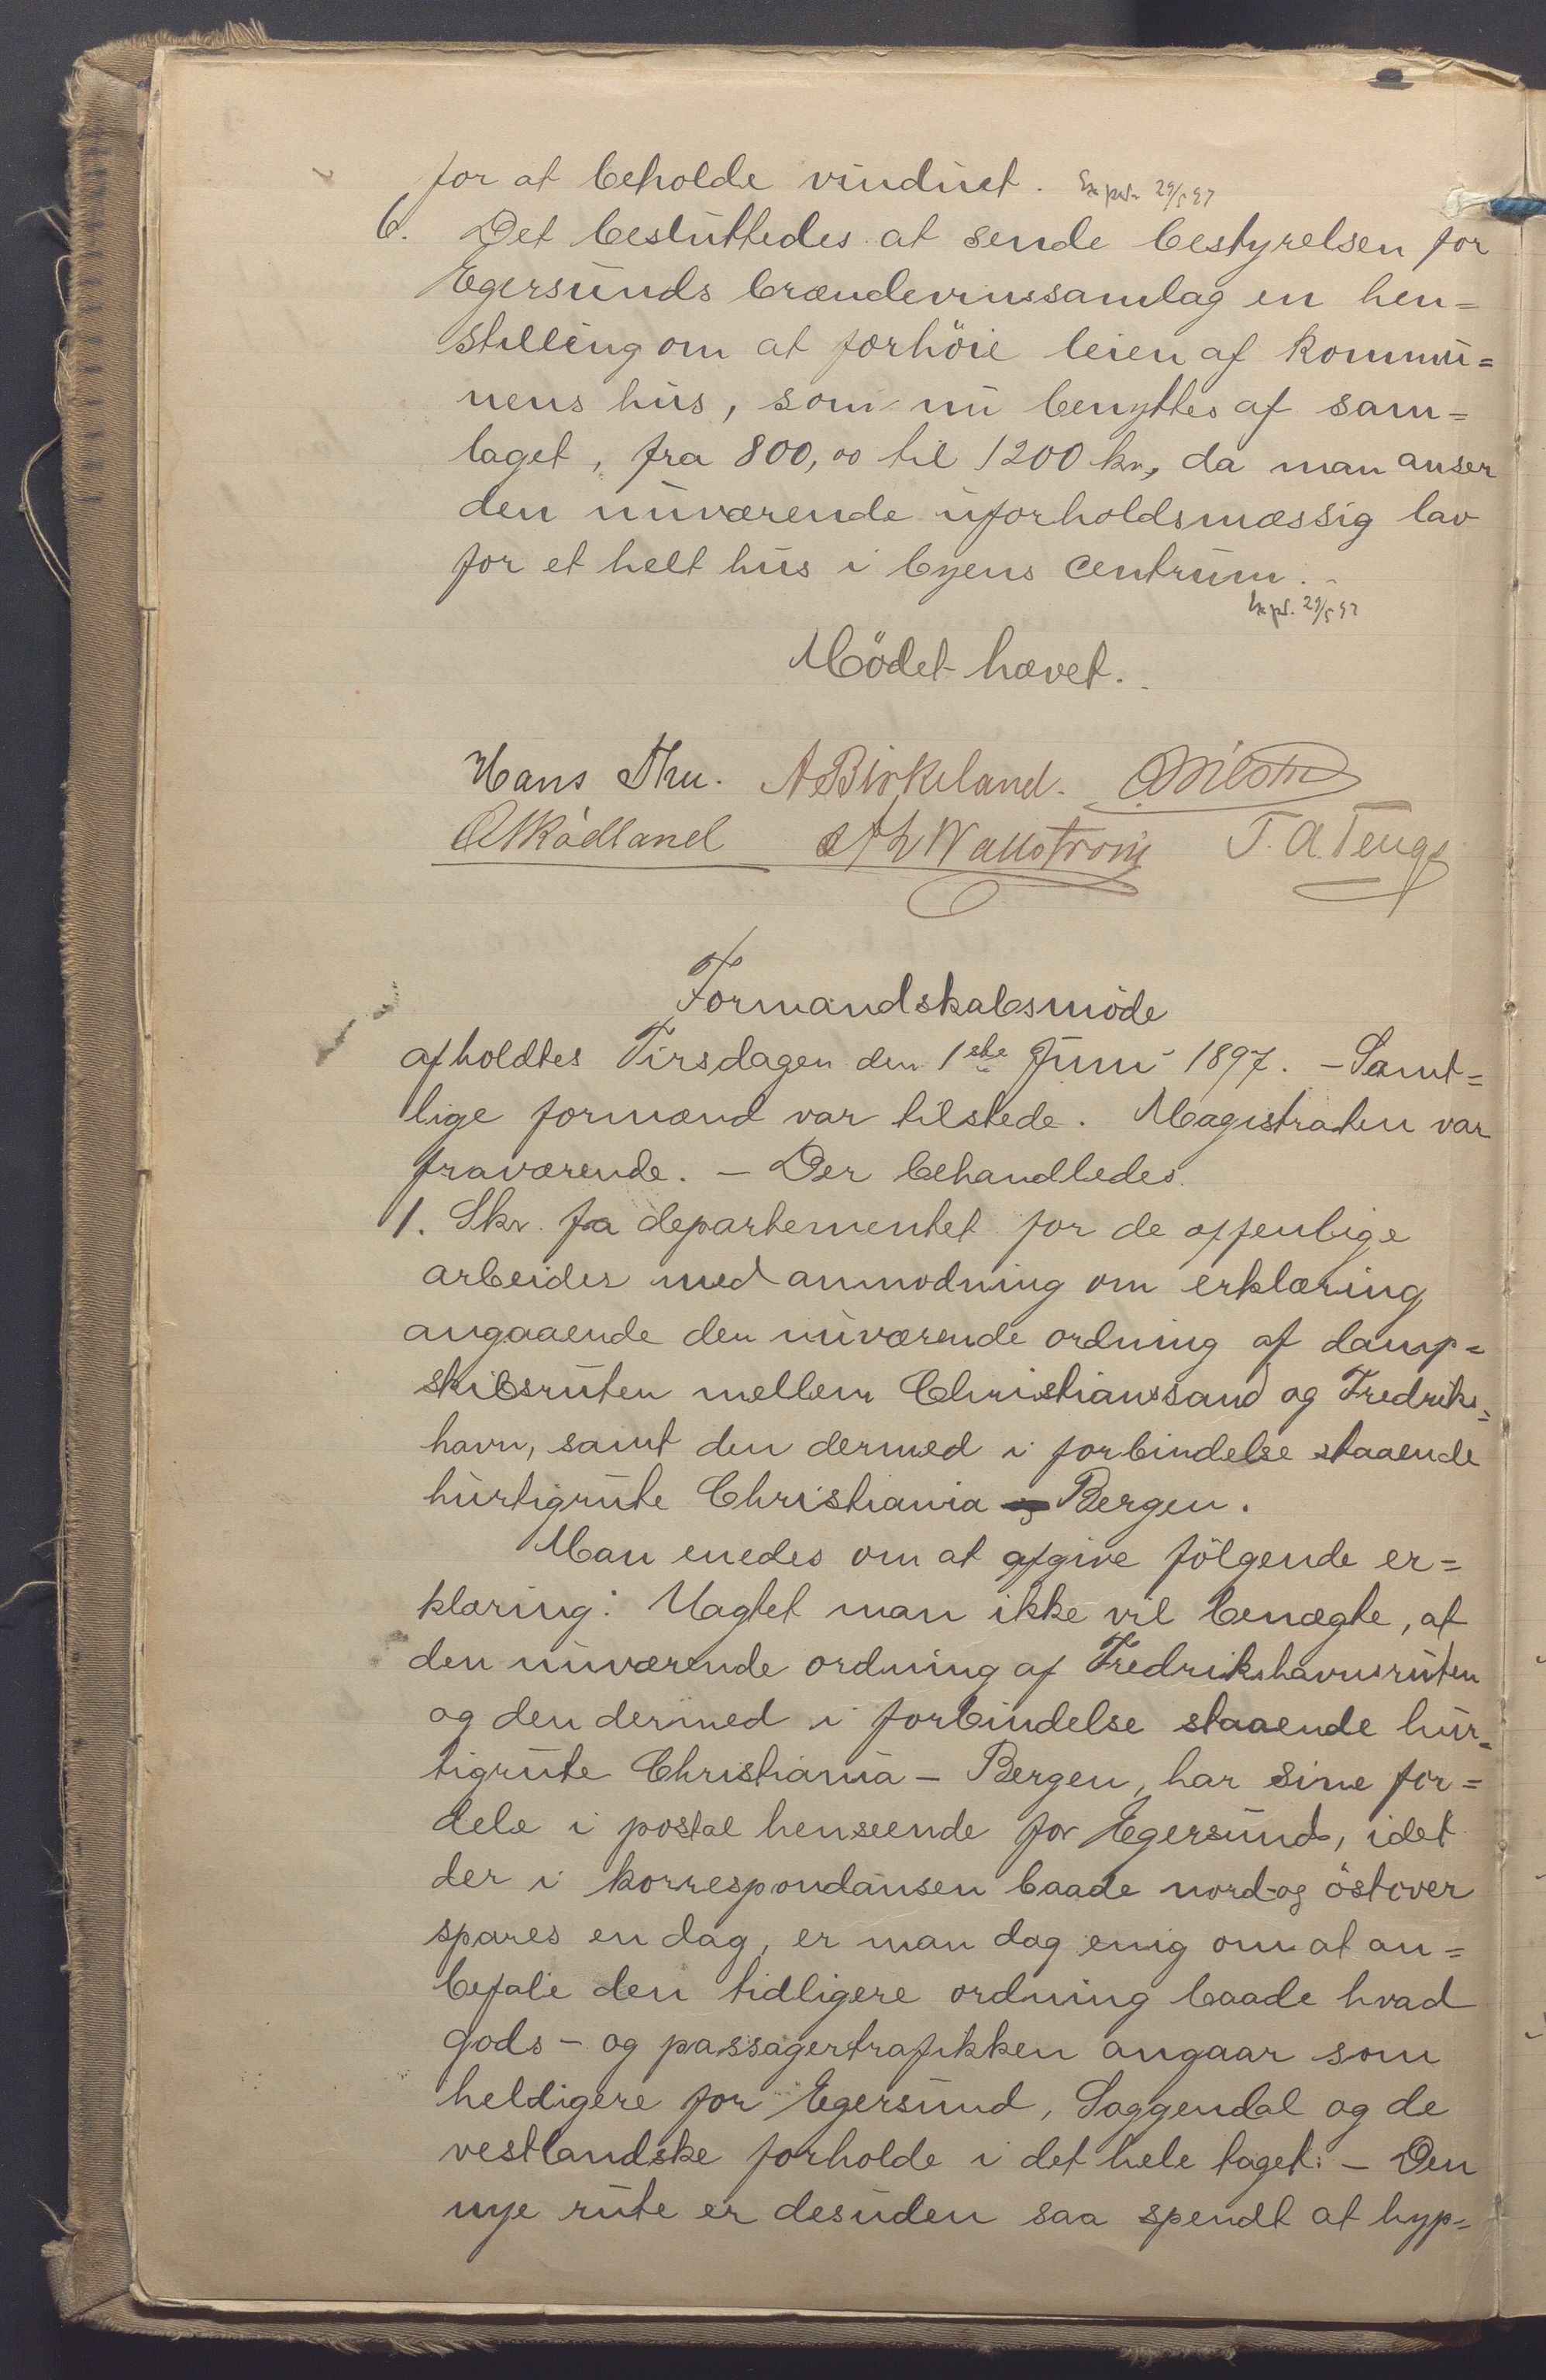 for at beholde vinduet. Exp. 29/5 97
6. Det besluttedes at sende bestyrelsen for
Egersunds brændevinssamlag en hen=
stilling om at forhöie leien af kommu=
nens hus, som nu benyttes af sam=
laget, fra 800,00 til 1200 kr, da man anser
den nuværende uforholdsmæssig lav
for et helt hus i byens centrum.
Exp. 29/5 97
Mödet hævet.
Hans Thu. A Birkeland.
O M Rådland Wallstrom T. A. Tengs
Formandskabsmöde
afholdtes Tirsdagen den 1ste Juni 1897. – Samt=
lige formænd var tilstede. Magistraten var
fraværende. – Der behandledes.
1. Skr. fa departementet for de offenlige
arbeider med anmodning om erklæring
angaaende den nuværende ordning af damp=
skibsruten mellem Christianssand og Fredriks=
havn, samt den dermed i forbindelse staaende
hurtigrute Christiania – Bergen.
Man enedes om at afgive fölgende er=
klæring: Uagtet man ikke vil benægte, at
den nuværende ordning af Fredrikshavnsruten
og den dermed i forbindelse staaende hur=
tigrute Christiania – Bergen, har sine for=
dele i postal henseende for Egersund, idet
der i korrespondansen baade nord- og östover
spares en dag, er man dog enig om at an=
befale den tidligere ordning baade hvad
gods- og passagertrafikken angaar som
heldigere for Egersund, Soggendal og de
vestlandske forholde i det hele taget. – Den
nye rute er desuden saa spendt at hyp=